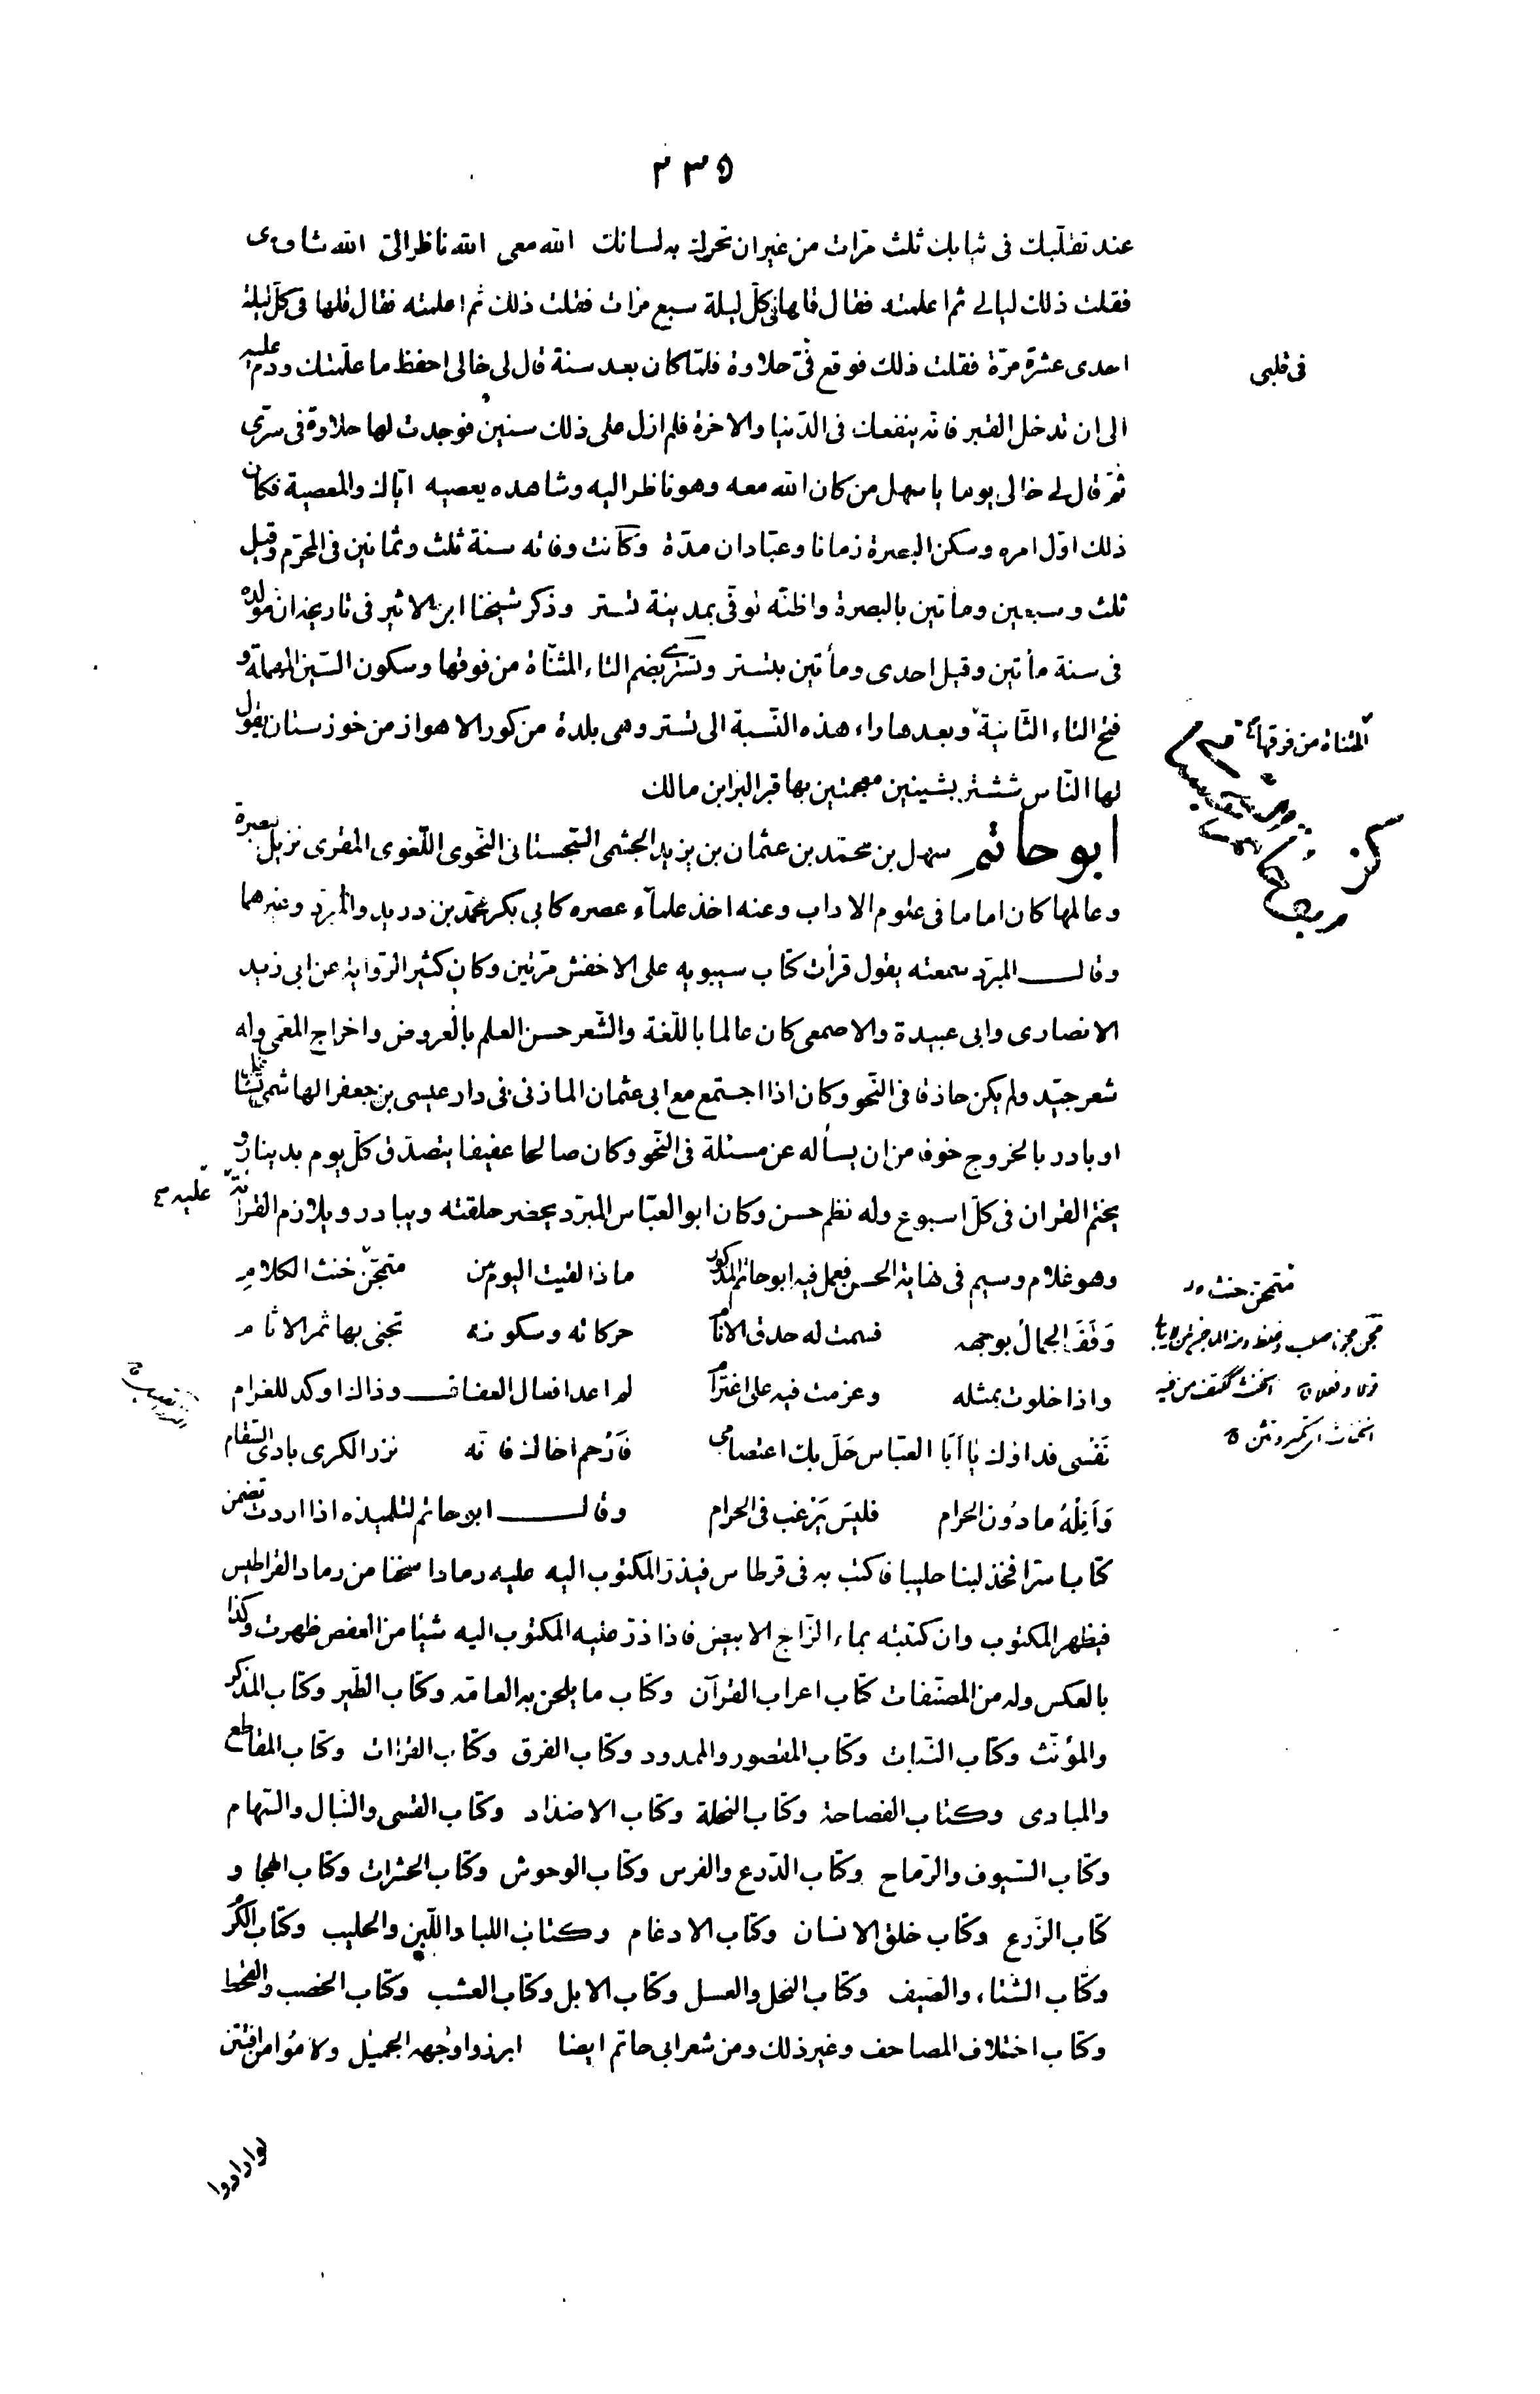 ٢٣٥
عند تقلّبك فى ثيابك ثلث مرّات من غير ان تحرك به لسانك الله معى الله ناظر الىّ الله شاهدى
فقلت ذلك ليالى ثم اعلمته فقال قلها فى كلّ ليلة سبع مرّات فقلت ذلك ثم اعلمته فقال قلها فى كلّ ليلة
احدى عشرة مرّة فقلت ذلك فوقع فىّ حلاوة فلمّا كان بعد سنة قال لى خالى احفظ ما علّمتك ودم عليه
فى قلبى
الى ان تدخل القبر فانّه ينفعك فى الدّنيا والاخرة فلم ازل على ذلك سنين فوجدت لها حلاوة فى سرّى
ثمّ قال لى خالى يوما يا سهل من كان الله معه وهو ناظر اليه وشاهده يعصيه ايّاك والمعصية فكان
ذلك اوّل امره وسكن البصرة زمانا وعبّادان مدّة وكانت وفاته سنة ثلث وثمانين فى المحرّم وقيل
ثلث وسبعين ومأتين بالبصرة واظنّه توفّى بمدينة تستر وذكر شيخنا ابن الاثير فى تاريخه ان مولده
فى سنة مأتين وقيل احدى ومأتين بتستر وتسترى بضم التاء المثنّاة من فوقها وسكون السّين المهملة و
فتح التاء الثّانية وبعدها راء هذه النّسبة الى تستر وهى بلدة من كور الاهواز من خوزستان يقول
المثناة من فوقها
لها النّاس ششتر بشينين معجمتين بها قبر البرا بن مالك
ابو حاتم سهل بن محمّد بن عثمان بن يزيد الجشمى السّجستانى النّحوى اللّغوى المقرى نزيل بصرة
وعالمها كان اماما فى علوم الاداب وعنه اخذ علمآء عصره كابى بكر محمّد بن دريد والمبرّد وغيرهما
وقال المبرّد سمعته يقول قرأت كتاب سيبويه على الاخفش مرّتين وكان كثير الرّواية عن ابى زيد
الانصارى وابى عبيدة والاصمعى كان عالما باللّغة والشّعر حسن العلم بالعروض واخراج المعمّى وله
شعر جيّد ولم يكن حاذقا فى النّحو وكان اذا اجتمع مع ابى عثمان المازنى فى دار عيسى بن جعفر الهاشمى تشاغل
او بادر بالخروج خوفا من ان يسأله عن مسئلة فى النّحو وكان صالحا عفيفا يتصدّق كلّ يوم بدينار و
يختم القران فى كلّ اسبوع وله نظم حسن وكان ابو العبّاس المبرّد يحضر حلقته ويبادر ويلازم القراءة
عليه
وهو غلام وسيم فى نهاية الحسن فعمل فيه ابو حاتم المذكور ماذا لقيت اليوم من متمجّن خنث الكلام
وَقَفَ الجمالُ بوجهه فسمت له حدق الانام حركاته وسكونه تجنى بها ثمر الاثام
واذا خلوت بمثله وعزمت فيه على اغترام لم اعد افعال العفاف وذاك اوكد للغرام
نَفْسى فداؤك يا اَبَا العبّاس حَلّ بك اعتصامى فَارْحم اخاك فانّه نزر الكرى بادى السّقام
وَاَنِلْهُ ما دُون الحرام فليسَ يَرْغب فى الحرام وقال ابو حاتم لتلميذه اذا اردت تضمن
كتابا سرّا فخذ لبنا حليبا فاكتب به فى قرطاس فيذر المكتوب اليه عليه رمادا سخنا من رماد القراطيس
فيظهر المكتوب وان كتبته بماء الزّاج الابيض فاذا ذرّ عليه المكتوب اليه شيئا من العفص ظهرت وكذا
بالعكس وله من المصنّفات كتاب اعراب القرآن وكتاب ما يلحن به العامّه وكتاب الطّير وكتاب المذكر
والمؤنّث وكتاب النّبات وكتاب المقصور والممدود وكتاب الفرق وكتاب القراات وكتاب المقاطع
والمبادى وكتاب الفصاحة وكتاب النحلة وكتاب الاضداد وكتاب القسى والنّبال والسّهام
وكتاب السّيوف والرّماح وكتاب الدّرع والفرس وكتاب الوحوش وكتاب الحشرات وكتاب الهجا و
كتاب الزّرع وكتاب خلق الانسان وكتاب الادغام وكتاب اللباء واللّبن والحليب وكتاب الكرم
وكتاب الشّتاء والصّيف وكتاب النحل والعسل وكتاب الابل وكتاب العشب وكتاب الخصب والقحط
وكتاب اختلاف المصاحف وغير ذلك ومن شعر ابى حاتم ايضا ابرزوا وَجْهه الجميل ولامُوا من افتتن
لو ارادوا